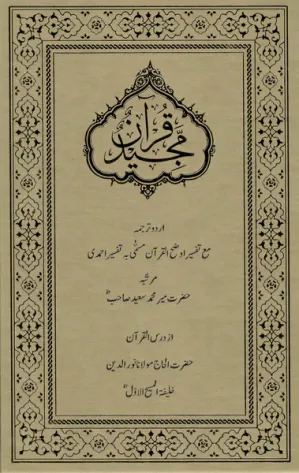 قرآن مجید
اردو ترجمہ
مع تفسیر اوضح القرآن مسمّٰی بہ تفسیر احمدی
مرتبہ
حضرت میر محمد سعید صاحبؓ
از درس القرآن
حضرت الحاج مولانا نورالدین
خلیفۃ المسیح الاوّلؓ